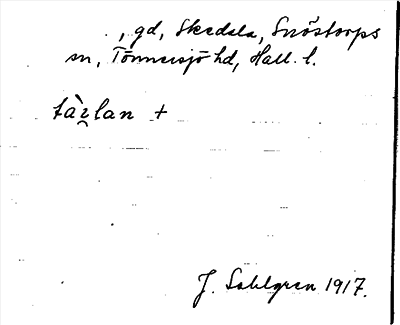 ., gd, Skedala, Snöstorps
sn, Tönnersjö hd, Hall. l.
tàrlan +
J. Sahlgren 1917.